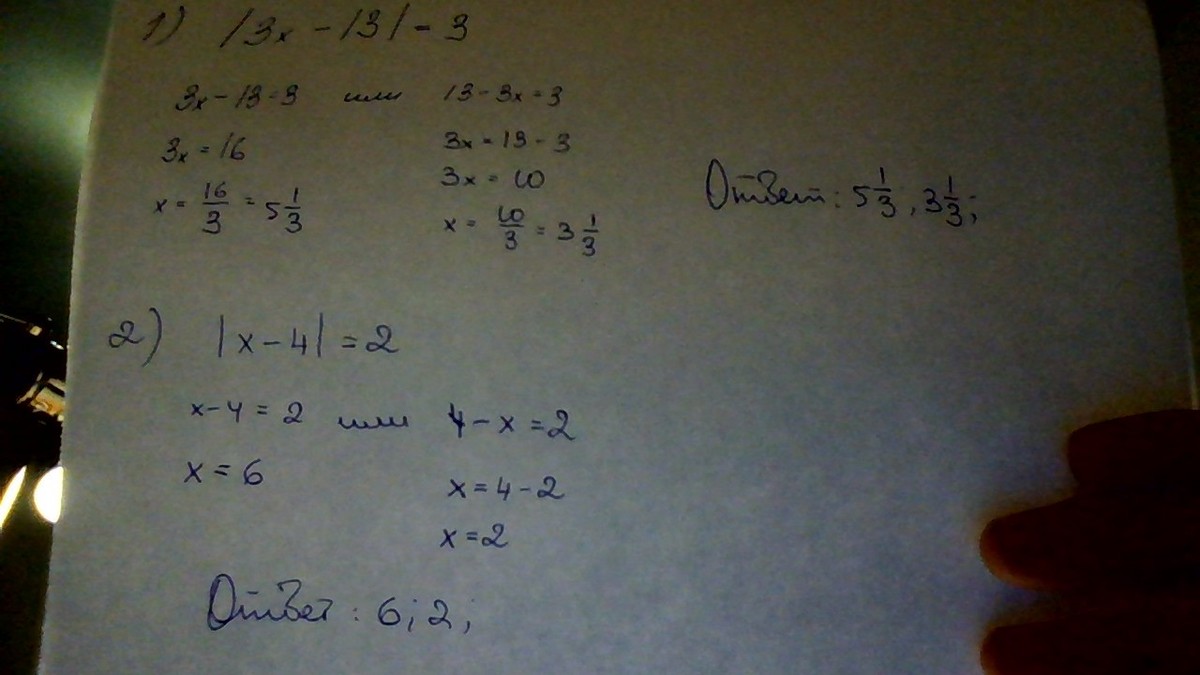 1) |3x - 13| = 3
3x - 13 = 3 или 13 - 3x = 3
3x = 16
x = 16/3 = 5 1/3
3x = 13 - 3
3x = 10
x = 10/3 = 3 1/3
Ответ: 5 1/3; 3 1/3;
2) |x - 4| = 2
x - 4 = 2 или 4 - x = 2
x = 6
x = 4 - 2
x = 2
Ответ: 6; 2;